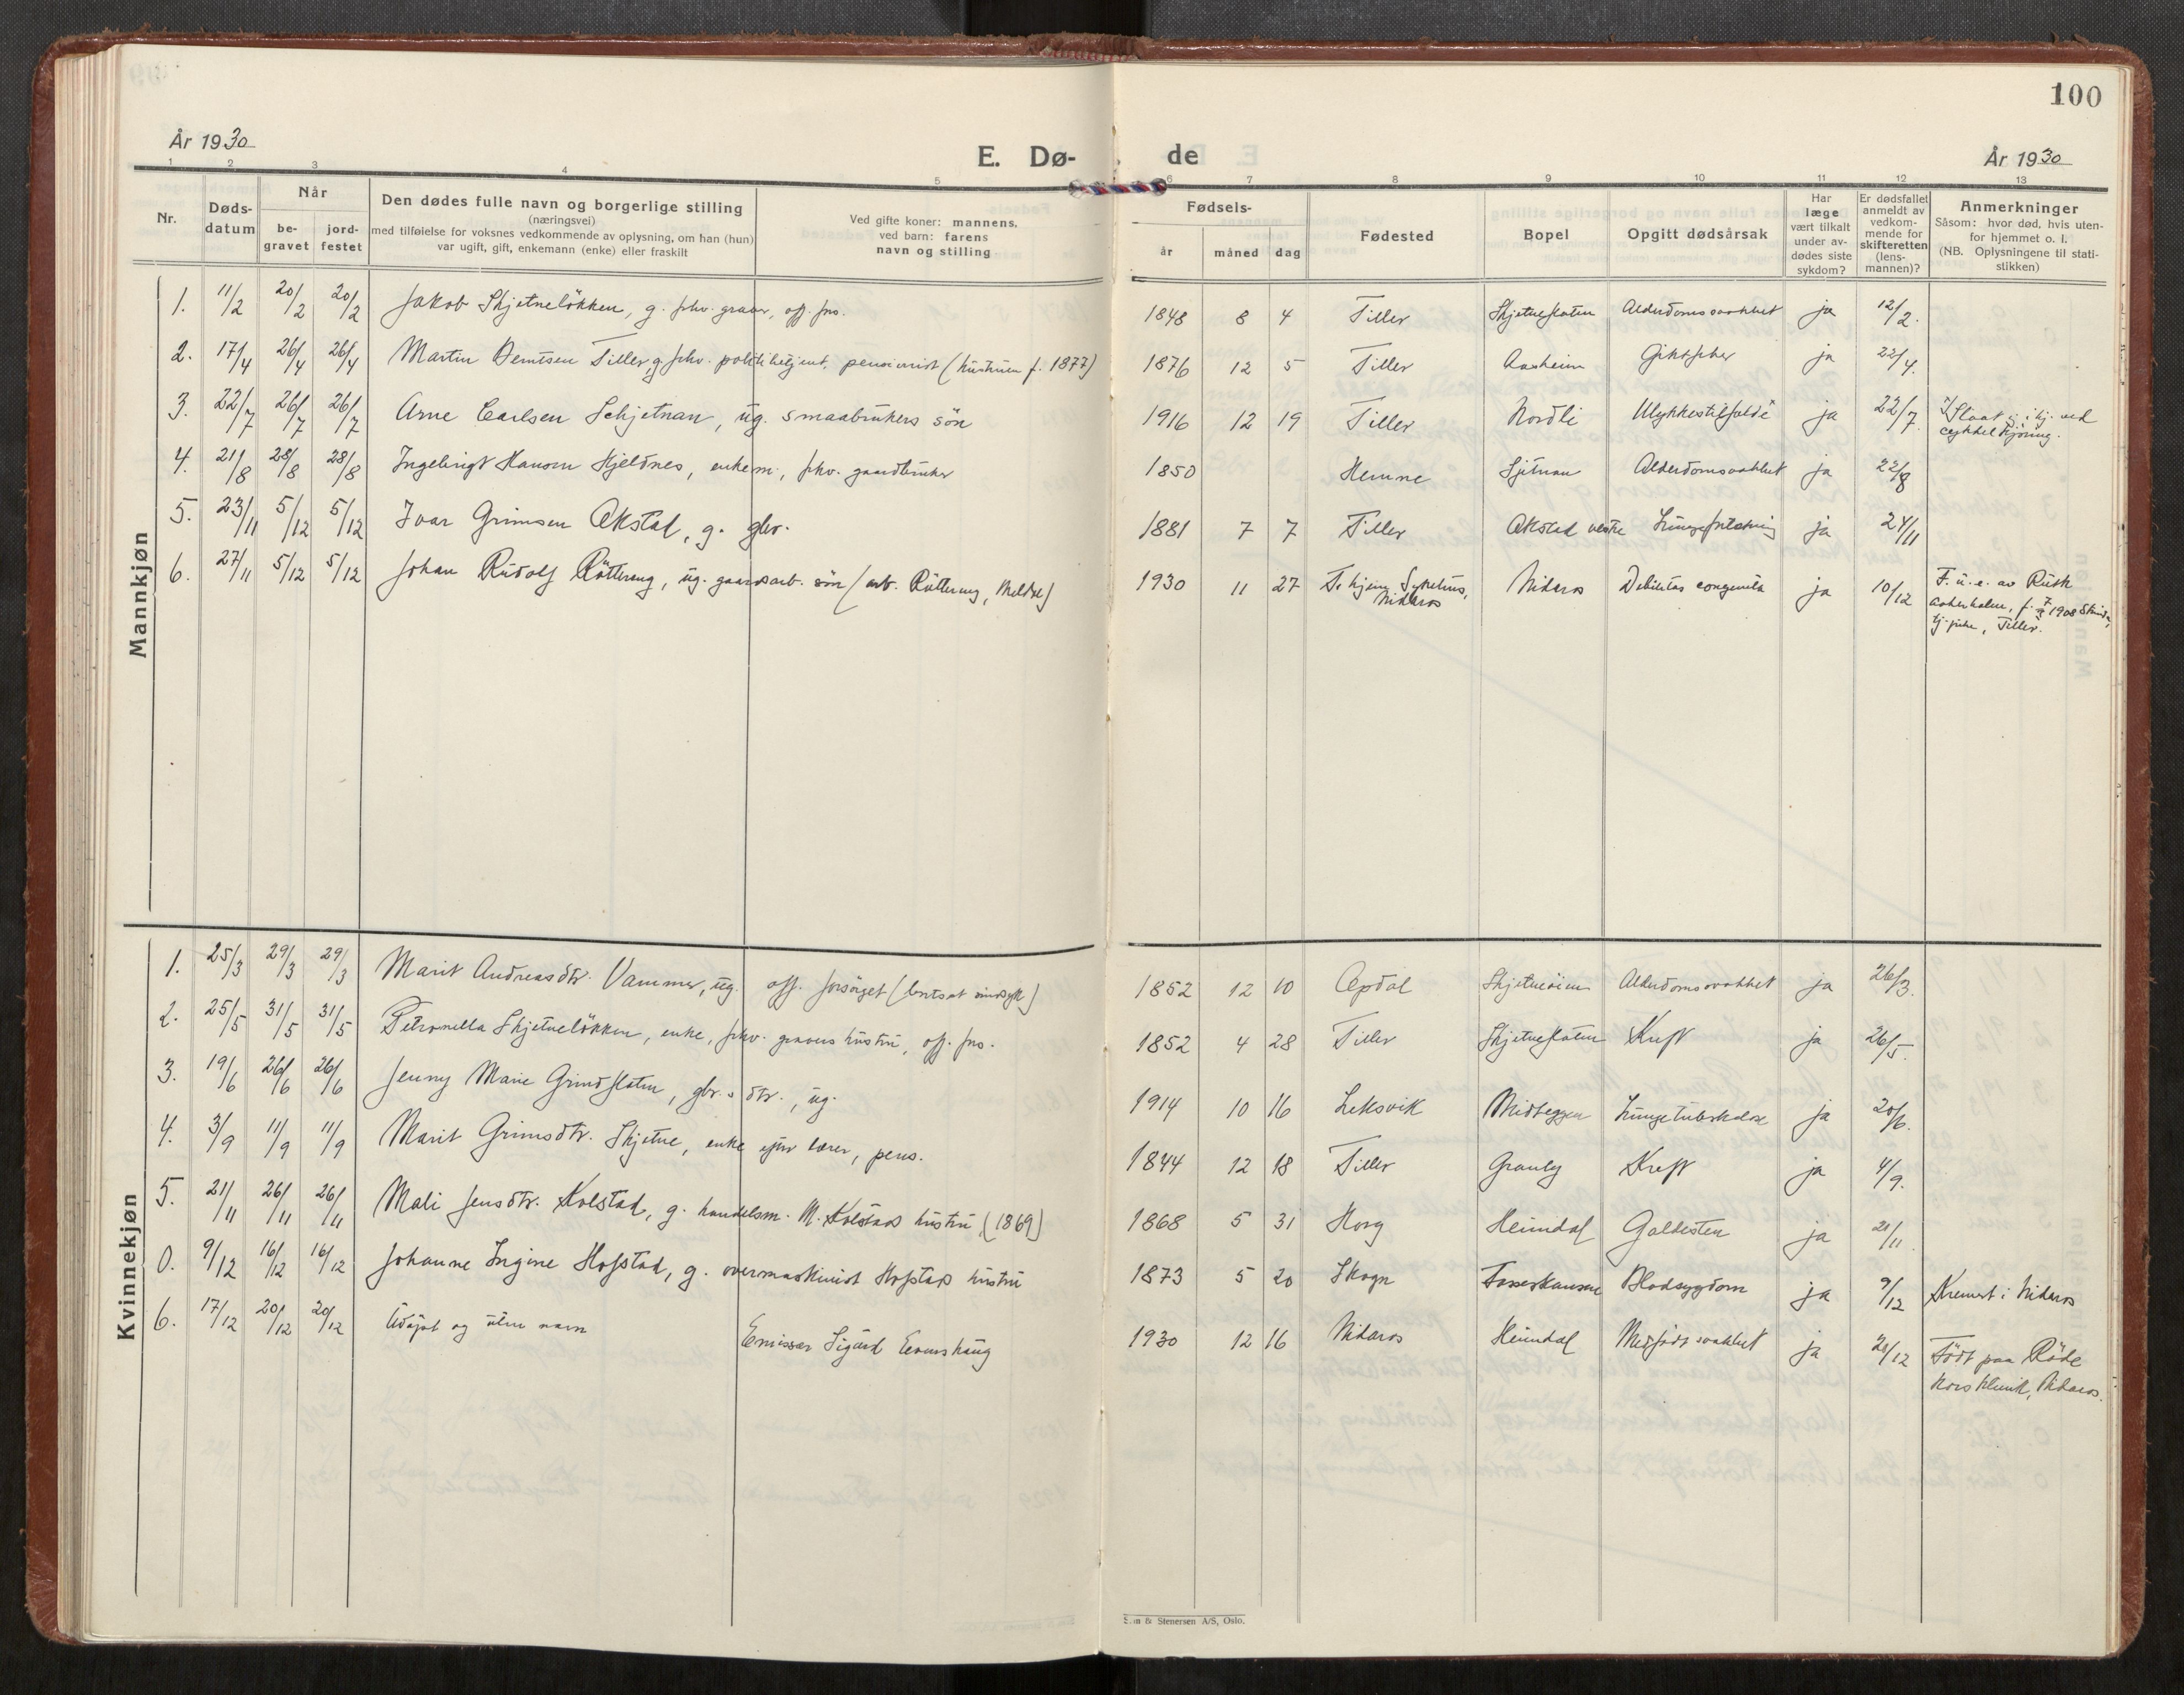 100
År 1930
E. Dø-
de
År 1930
1 2 3 4 5 6 7 8 9 10 11 12 13
Nr.
Døds-
datum
Når
be-
gravet
jord-
festet
Den dødes fulle navn og borgerlige stilling
(næringsvei)
med tilføielse for voksnes vedkommende av oplysning, om han (hun)
var ugift, gift, enkemann (enke) eller fraskilt
Ved gifte koner: mannens,
ved barn: farens
navn og stilling
Fødsels-
år måned dag
Fødested
Bopel
Opgitt dødsårsak
Har
læge
vært tilkalt
under av-
dødes siste
sykdom?
Er dødsfallet
anmeldt av
vedkom-
mende for
skifteretten
(lens-
mannen)?
Anmerkninger
Såsom: hvor død, hvis uten-
for hjemmet o. l.
(NB. Oplysningene til stati-
stikken)
Mannkjøn
1. 11/2 20/2 20/2 Jakob Skjetneløkken, g. fhv. graver, off. fors. 1848 8 4 Tiller Skjetneflaten Alderdomssvakhet ja 12/2.
2. 17/4 26/4 26/4 Martin Berntsen Tiller, g. fhv. politibetjent, pensionist (hustruen f. 1877) 1876 12 5 Tiller Aasheim ja 22/4.
3. 22/7 26/7 26/7 Arne Carlsen Schjetnan, ug. smaabrukers søn 1916 12 19 Tiller Nordli Ulykkestilfælde ja 22/7
ved
cykkelkjøring.
4. 21/8 28/8 28/8 Ingebrigt Hansen Hjeldnes, enkem., fhv. gaardbruker 1850 Hemne Sjetnan Alderdomssvakhet ja 22/8
5. 23/11 5/12 5/12 Ivar Grimsen Okstad, g. gbr. 1881 7 7 Tiller Okstad vestre ja 24/11
6. 27/11 5/12 5/12 Johan Rudolf Røttereng, ug. gaardsarb. søn (arb. Røttereng, Meldal) 1930 11 27 Tr.hjem Sykehus,
Nidaros Nidaros Debilitas congenita ja 10/12 F. u. e. av Ruth
f. 1908
tj.pike, Tiller.
Kvinnekjøn
1. 25/3 29/3 29/3 Marit Andreasdtr. Vammer, ug. off. forsørget (bortsat sindssyk) 1852 12 10 Opdal Skjetneøien Alderdomssvakhet ja 26/3.
2. 25/5 31/5 31/5 Petronella Skjetneløkken, enke, fhv. gravers hustru, off. fors. 1852 4 28 Tiller Skjetneflaten Kreft ja 26/5.
3. 19/6 26/6 26/6 Jenny Marie Grindflaten, gbr.s dtr., ug. 1914 10 16 Leksvik Midteggen Lungetuberkulose ja 20/6.
4. 3/9 11/9 11/9 Marit Grimsdtr. Skjetne, enke efter lærer, pens. 1844 12 18 Tiller Granby Kreft ja 4/9.
5. 21/11 26/11 26/11 Mali Jensdtr. Kolstad, g. handelsm. M. Kolstads hustru (1869) 1868 5 31 Horg Heimdal Galdesten ja 21/11
0. 9/12 16/12 16/12 Johanne Ingine Hofstad, g. overmaskinist Hofstads hustru 1873 5 20 Skogn Fossestuene Blodsygdom ja 9/12 Kremert i Nidaros
6. 17/12 20/12 20/12 Udøpt og uten navn Emissær Sigurd Evenshaug 1930 12 16 Nidaros Heimdal Medfødt svakhet ja 20/12 Født paa Røde
Kors Klinik, Nidaros.
& Stenersen A/S, Oslo.